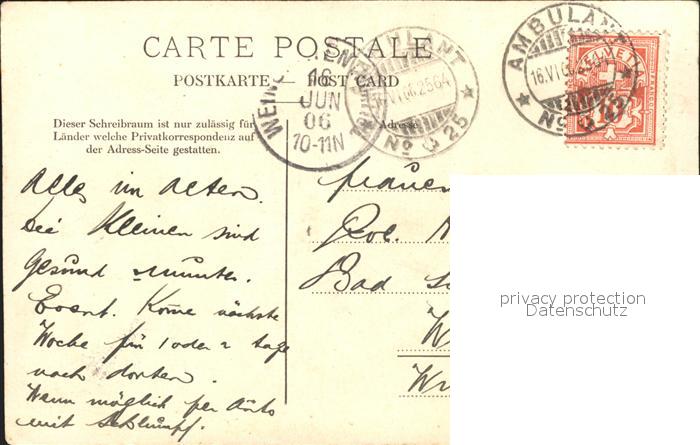 CARTE POSTALE
POSTKARTE — POST CARD
Dieser Schreibraum ist nur zulässig für
Länder welche Privatkorrespondenz auf
der Adress-Seite gestatten.
Adresse
16
JUN
06
10-11N
AMBULANT
Nº 25
AMBULANT
16.VI.06
Nº
HELVETIA
10
Alles im Alten.
Die Kleinen sind
Gesund munter.
Event. Kome nächste
Woche für 1 oder 2 Tage
nach dorten.
Wenn möglich per Auto
mit Schlumpf.
Frauen
Bad
privacy protection
Datenschutz